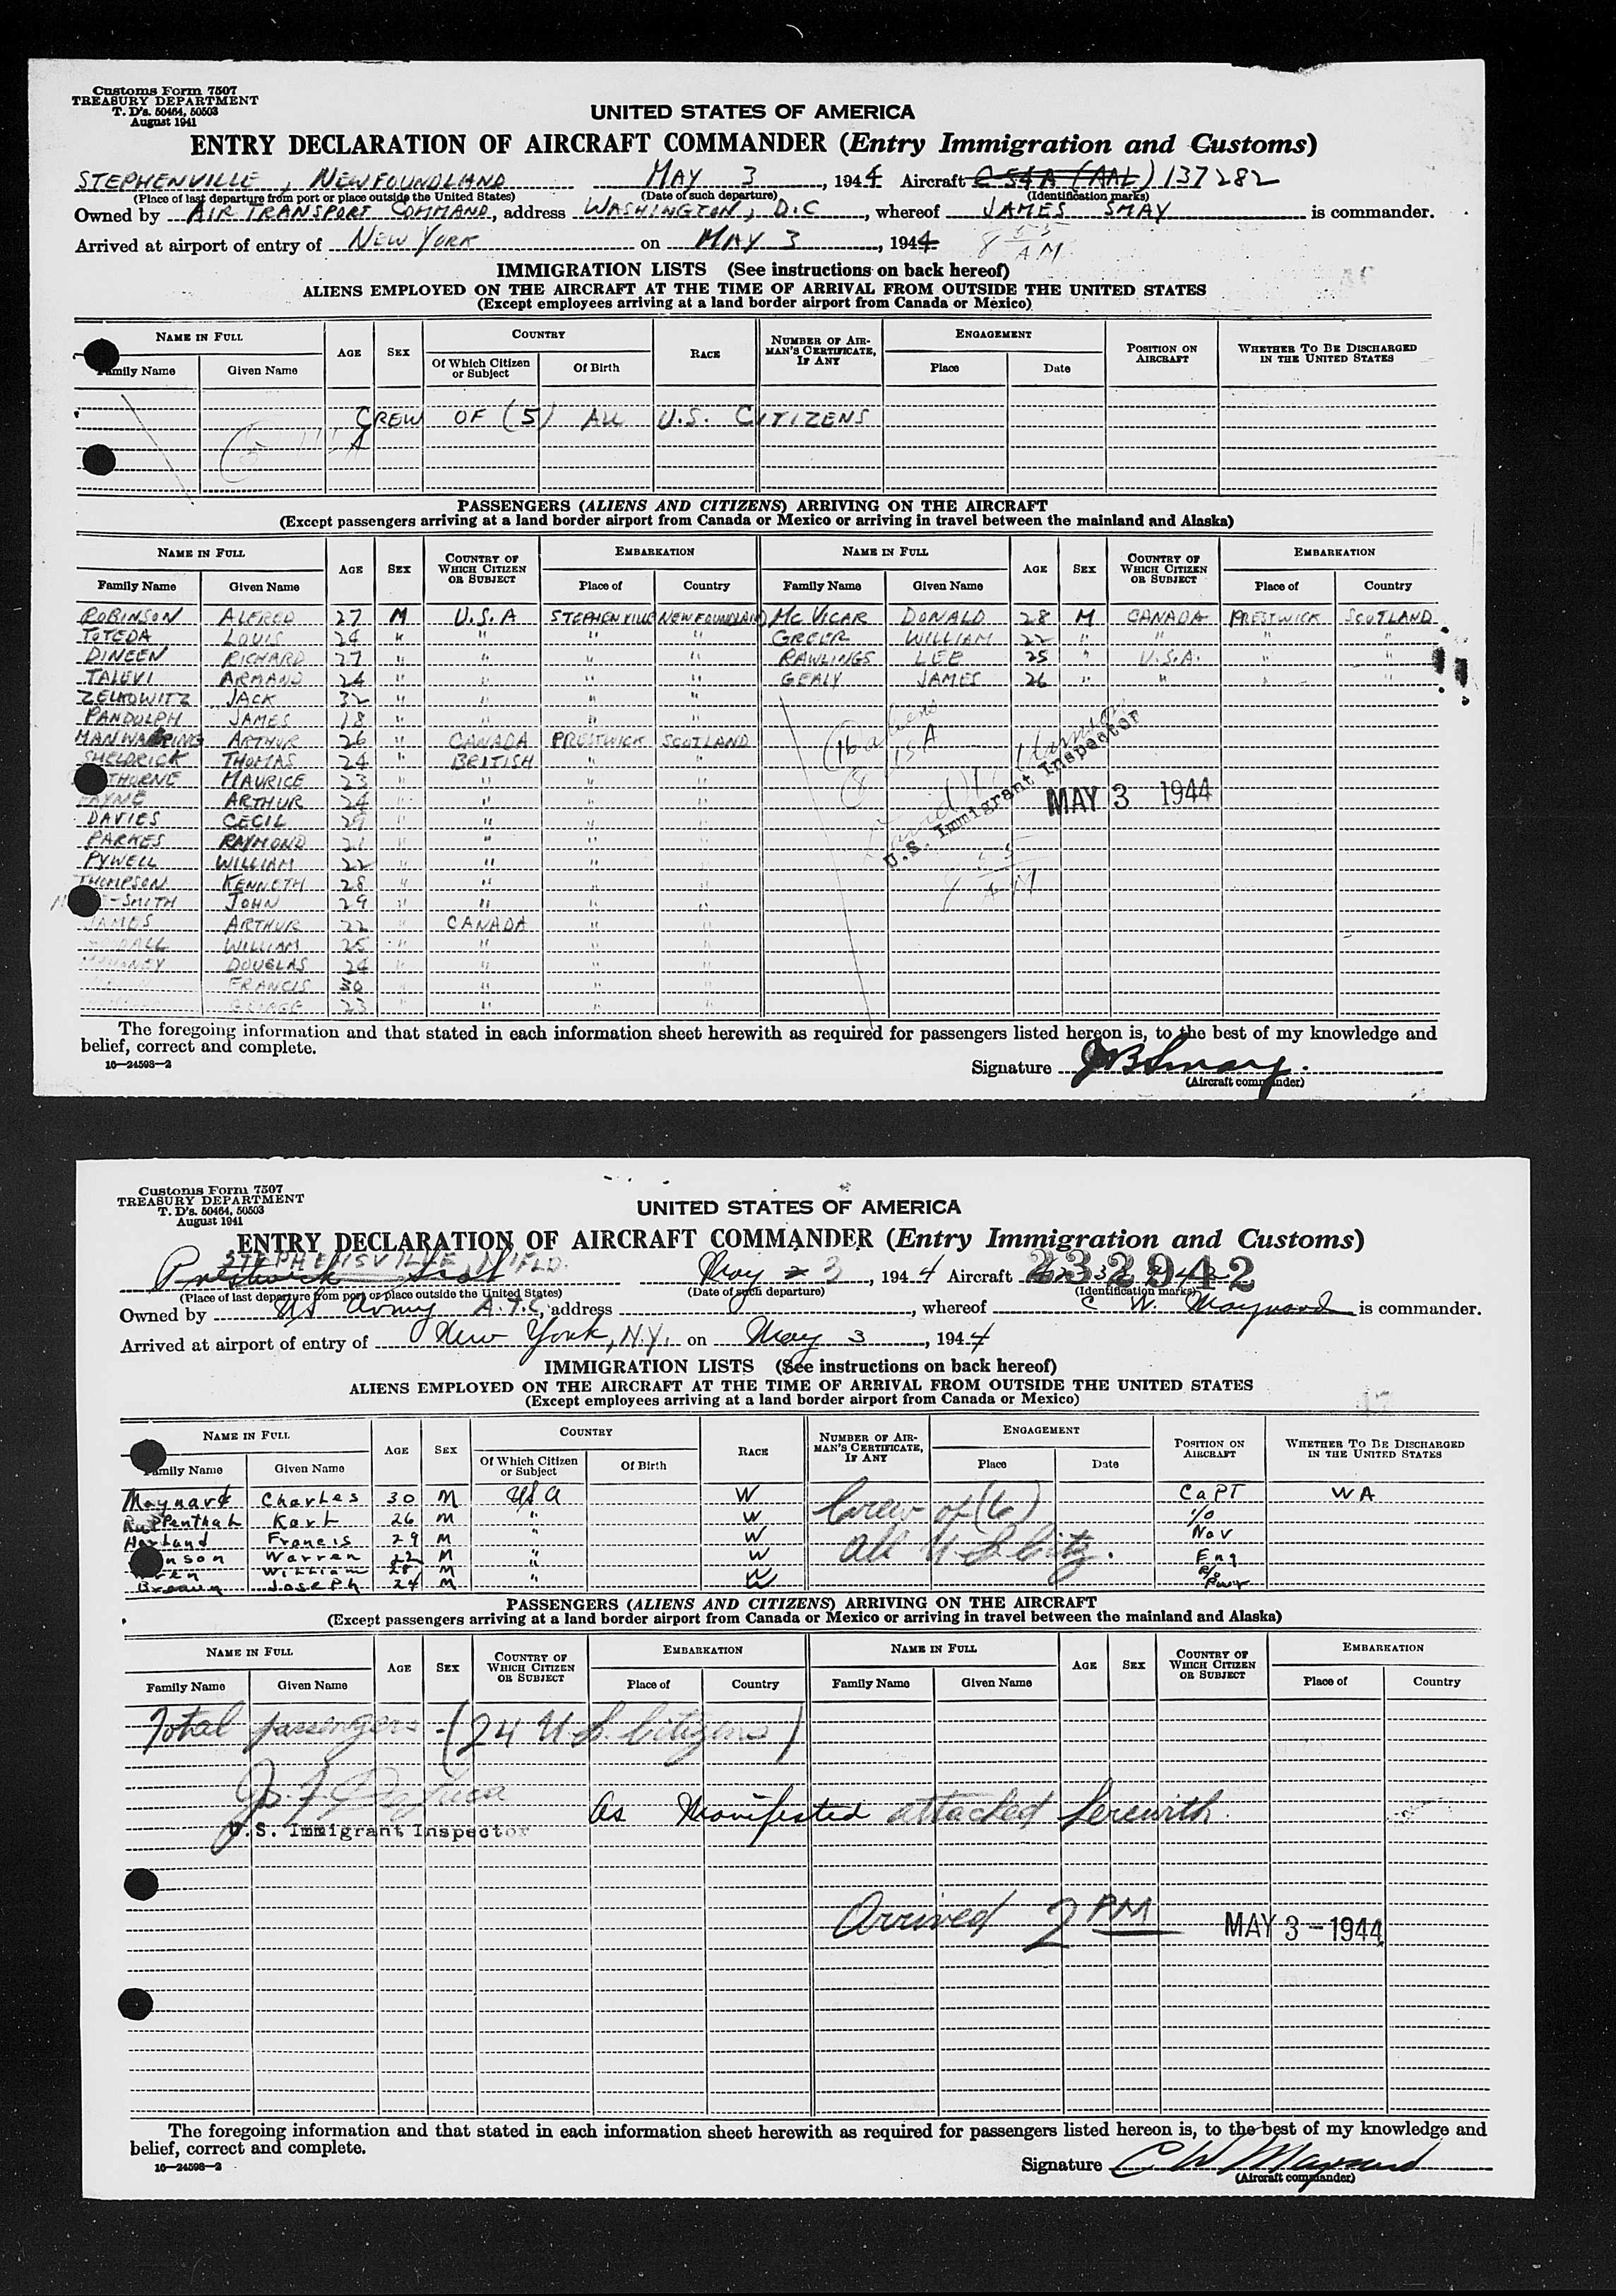 Customs Form 7507
TREASURY DEPARTMENT
T. D's. 50464, 50503
August 1941
UNITED STATES OF AMERICA
ENTRY DECLARATION OF AIRCRAFT COMMANDER (Entry Immigration and Customs)
STEPHENVILLE, NEWFOUNDLAND MAY 3, 1944 Aircraft C 54A (AAL) 137282
(Place of last departure from port or place outside the United States) (Date of such departure) (Identification marks)
Owned by AIR TRANSPORT COMMAND, address WASHINGTON, D.C, whereof JAMES SMAY is commander.
Arrived at airport of entry of NEW YORK on MAY 3, 1944 8 55 AM
IMMIGRATION LISTS (See instructions on back hereof)
ALIENS EMPLOYED ON THE AIRCRAFT AT THE TIME OF ARRIVAL FROM OUTSIDE THE UNITED STATES
(Except employees arriving at a land border airport from Canada or Mexico)
NAME IN FULL AGE SEX COUNTRY RACE NUMBER OF AIRMAN'S CERTIFICATE, IF ANY ENGAGEMENT POSITION ON AIRCRAFT WHETHER TO BE DISCHARGED IN THE UNITED STATES
Family Name Given Name Of Which Citizen or Subject Of Birth Place Date
CREW OF (5) ALL U.S. CITIZENS
PASSENGERS (ALIENS AND CITIZENS) ARRIVING ON THE AIRCRAFT
(Except passengers arriving at a land border airport from Canada or Mexico or arriving in travel between the mainland and Alaska)
NAME IN FULL AGE SEX COUNTRY OF WHICH CITIZEN OR SUBJECT EMBARKATION NAME IN FULL AGE SEX COUNTRY OF WHICH CITIZEN OR SUBJECT EMBARKATION
Family Name Given Name Place of Country Family Name Given Name Place of Country
ROBINSON ALFRED 27 M U.S.A STEPHENVILLE NEWFOUNDLAND MC VICAR DONALD 28 M CANADA PRESTWICK SCOTLAND
TOTEDA LOUIS 24 " " " " GREER WILLIAM 22 " " " "
DINEEN RICHARD 27 " " " " RAWLINGS LEE 25 " U.S.A. " "
TALEVI ARMAND 24 " " " " GEALY JAMES 26 " " " "
ZELKOWITZ JACK 32 " " " "
PANDOLPH JAMES 18 " " " "
MANWARRING ARTHUR 26 " CANADA PRESTWICK SCOTLAND
SHELDRICK THOMAS 24 " BRITISH " "
THORNE MAURICE 23 " " " "
PAYNE ARTHUR 24 " " " "
DAVIES CECIL 29 " " " "
PARKES RAYMOND 21 " " " "
PYWELL WILLIAM 22 " " " "
THOMPSON KENNETH 28 " " " "
-SMITH JOHN 29 " " " "
JAMES ARTHUR 22 " CANADA " "
WILLIAM 25 " " " "
DOUGLAS 24 " " " "
FRANCIS 30 " " " "
GEORGE 23 " " " "
(16 aliens
U.S. Immigrant Inspector
MAY 3 1944
The foregoing information and that stated in each information sheet herewith as required for passengers listed hereon is, to the best of my knowledge and
belief, correct and complete.
16—24598—2
Signature J B Smay.
(Aircraft commander)
Customs Form 7507
TREASURY DEPARTMENT
T. D's. 50464, 50503
August 1941
UNITED STATES OF AMERICA
ENTRY DECLARATION OF AIRCRAFT COMMANDER (Entry Immigration and Customs)
STEPHENSVILLE, NFLD.
Prestwick Scot May 2 3, 1944 Aircraft 232942
(Place of last departure from port or place outside the United States) (Date of such departure) (Identification marks)
Owned by US Army A.T.C, address , whereof C W. Maynard is commander.
Arrived at airport of entry of New York, N.Y. on May 3, 1944
IMMIGRATION LISTS (See instructions on back hereof)
ALIENS EMPLOYED ON THE AIRCRAFT AT THE TIME OF ARRIVAL FROM OUTSIDE THE UNITED STATES
(Except employees arriving at a land border airport from Canada or Mexico)
NAME IN FULL AGE SEX COUNTRY RACE NUMBER OF AIRMAN'S CERTIFICATE, IF ANY ENGAGEMENT POSITION ON AIRCRAFT WHETHER TO BE DISCHARGED IN THE UNITED STATES
Family Name Given Name Of Which Citizen or Subject Of Birth Place Date
Maynard Charles 30 M USA W Crew of (6) CaPT WA
Ruppenthal Karl 26 M " W
Harland Francis 29 M " W All U S Citz. Nav
nson Warren 22 M " W Eng
William 28 M "
Joseph 24 M W
PASSENGERS (ALIENS AND CITIZENS) ARRIVING ON THE AIRCRAFT
(Except passengers arriving at a land border airport from Canada or Mexico or arriving in travel between the mainland and Alaska)
NAME IN FULL AGE SEX COUNTRY OF WHICH CITIZEN OR SUBJECT EMBARKATION NAME IN FULL AGE SEX COUNTRY OF WHICH CITIZEN OR SUBJECT EMBARKATION
Family Name Given Name Place of Country Family Name Given Name Place of Country
Total passengers - (24 U.S. Citizens)
As Manifested attached herewith.
U.S. Immigrant Inspector
Arrived 2 PM MAY 3 - 1944
The foregoing information and that stated in each information sheet herewith as required for passengers listed hereon is, to the best of my knowledge and
belief, correct and complete.
16—24598—2
Signature C W Maynard
(Aircraft commander)